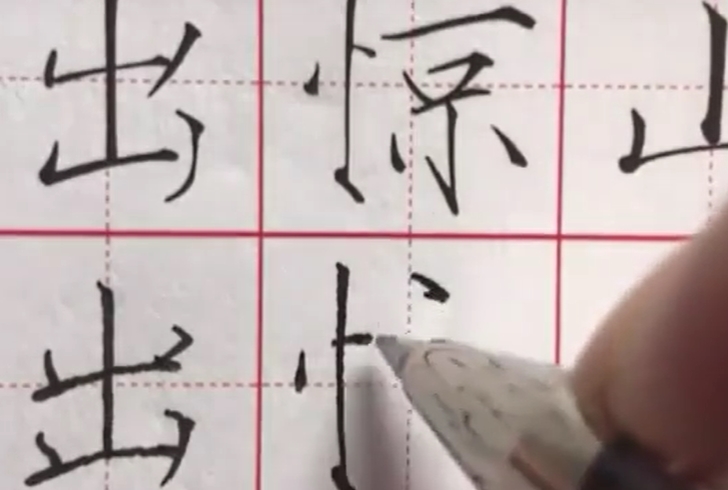 出惊山
出忄